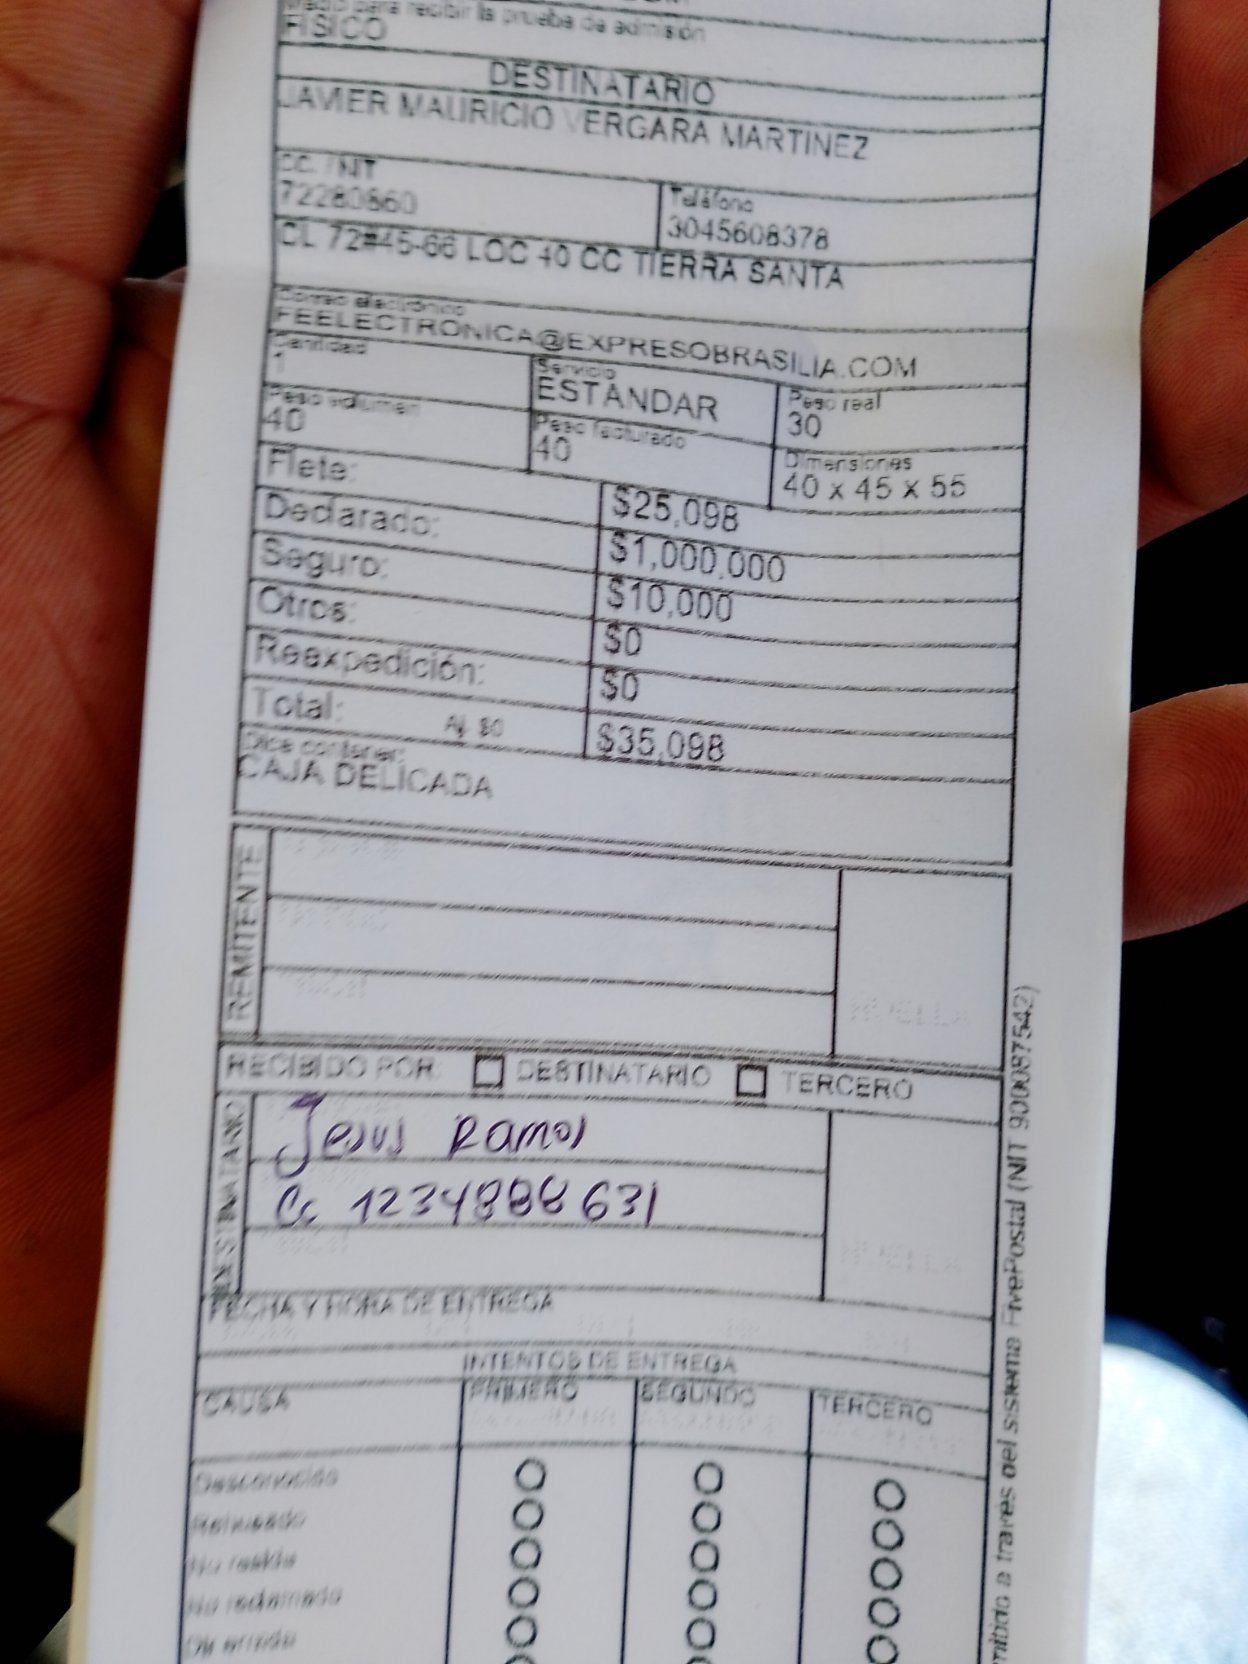 Medio para recibir la prueba de admisión
FISICO
DESTINATARIO
JAVIER MAURICIO VERGARA MARTINEZ
CC. / NIT
72280860
Teléfono
3045608378
CL 72#45-66 LOC 40 CC TIERRA SANTA
Correo electrónico
FEELECTRONICA@EXPRESOBRASILIA.COM
Cantidad
1
Servicio
ESTANDAR
Peso real
30
Peso volumen
40
Peso facturado
40
Dimensiones
40 x 45 x 55
Flete: $25,098
Declarado: $1,000,000
Seguro: $10,000
Otros: $0
Reexpedición: $0
Total: Aj. $0 $35,098
Dice contener:
CAJA DELICADA
REMITENTE
HUELLA
RECIBIDO POR: DESTINATARIO TERCERO
DESTINATARIO
Jesus Ramos
Cc 1234888631
HUELLA
FECHA Y HORA DE ENTREGA
INTENTOS DE ENTREGA
CAUSA PRIMERO SEGUNDO TERCERO
Desconocido
Rehusado
No reside
No reclamado
Dir errada
mitido a través del sistema FivePostal (NIT 900087542)